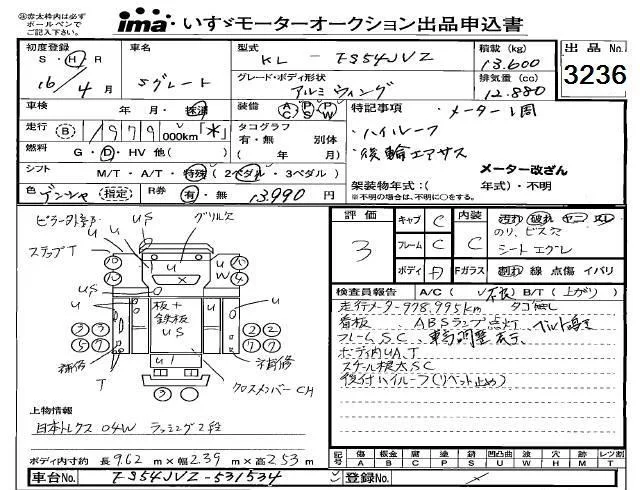 ima いすゞモーターオークション出品申込書
初度登録 車名 型式 KL - FS54JVZ 積載 (kg) 13.600 出品 No.
S・H・R 16年 4月 Sグレート グレード・ボディ形状 アルミウィング 排気量 (cc) 12.880 3236
車検 年・月・抹消 装備 A C P S P W 特記事項 ・メーター1周
走行 B 1979 000km「*」 タコグラフ 有・無 別体 ・ハイルーフ
燃料 G・D・HV 他( ) ( 年 月) ・後輪エアサス
シフト M/T・A/T・特殊(2ペダル・3ペダル) メーター改ざん
色 デンシャ 指定 R券 有・無 13.990円 架装物年式:( 年式)・不明
※不明の場合は、不明に○をする。
評価 3 キャブ C 内装 C 汚れ 破れ ヤニ スレ
フレーム C のリ、ビス穴
シートエグレ
ボディ Fガラス 割れ 線 点傷 イバリ
検査員報告 A/C ( ) B/T (上がり)
走行メーター978.995km タコ無し
看板、ABSランプ点灯、ベルト鳴き
フレームSC、車高調整表示
ボディ内UA、T
スケール根太SC
後付ハイルーフ(リベット止め)
ピラー外 US グリル欠
ステップT
板+鉄板 US
補修 T 才補修
クロスメンバーCH
上物情報
日本トレクス 04W ラッシング2段
ボディ内寸約 長9.62m×幅2.39m×高2.53m
記号 傷 A 板金 B 腐 C 塗 P 錆 S 凹凸曲 U 波 W 穴 H 跡 M レツ割 T
車台No. FS54JVZ-531534 登録No.